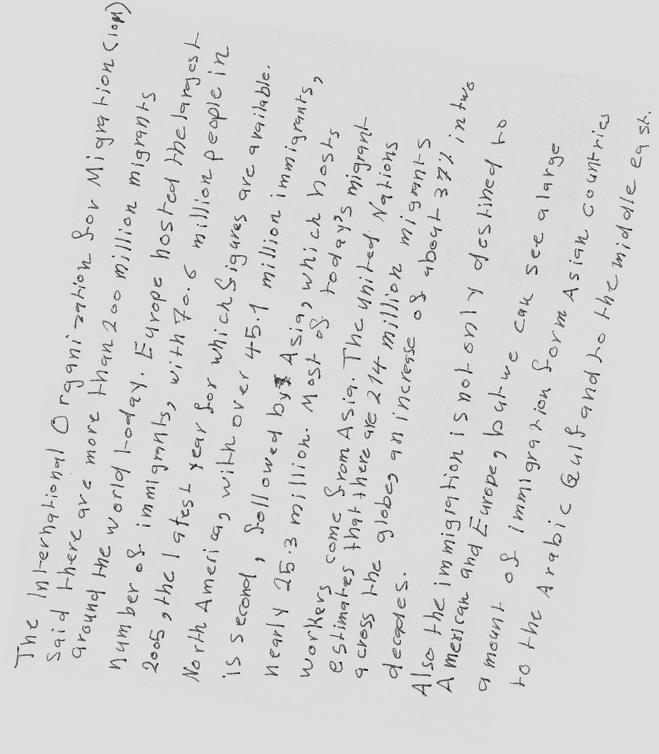 The International Organization for Migration (IOM)
Said there are more than 200 million migrants
around the world today. Europe hosted the largest
number of immigrants, with 70.6 million people in
2005, the latest year for which figures are available.
North America, with over 45.1 million immigrants,
is second, followed by Asia, which hosts
nearly 25.3 million. Most of today's migrant
workers come from Asia. The united Nations
estimates that there are 214 million migrants
across the globe, an increase of about 37% in two
decades.
Also the immigration is not only destined to
American and Europe, but we can see a large
amount of immigration form Asian countries
to the Arabic Gulf and to the middle east.